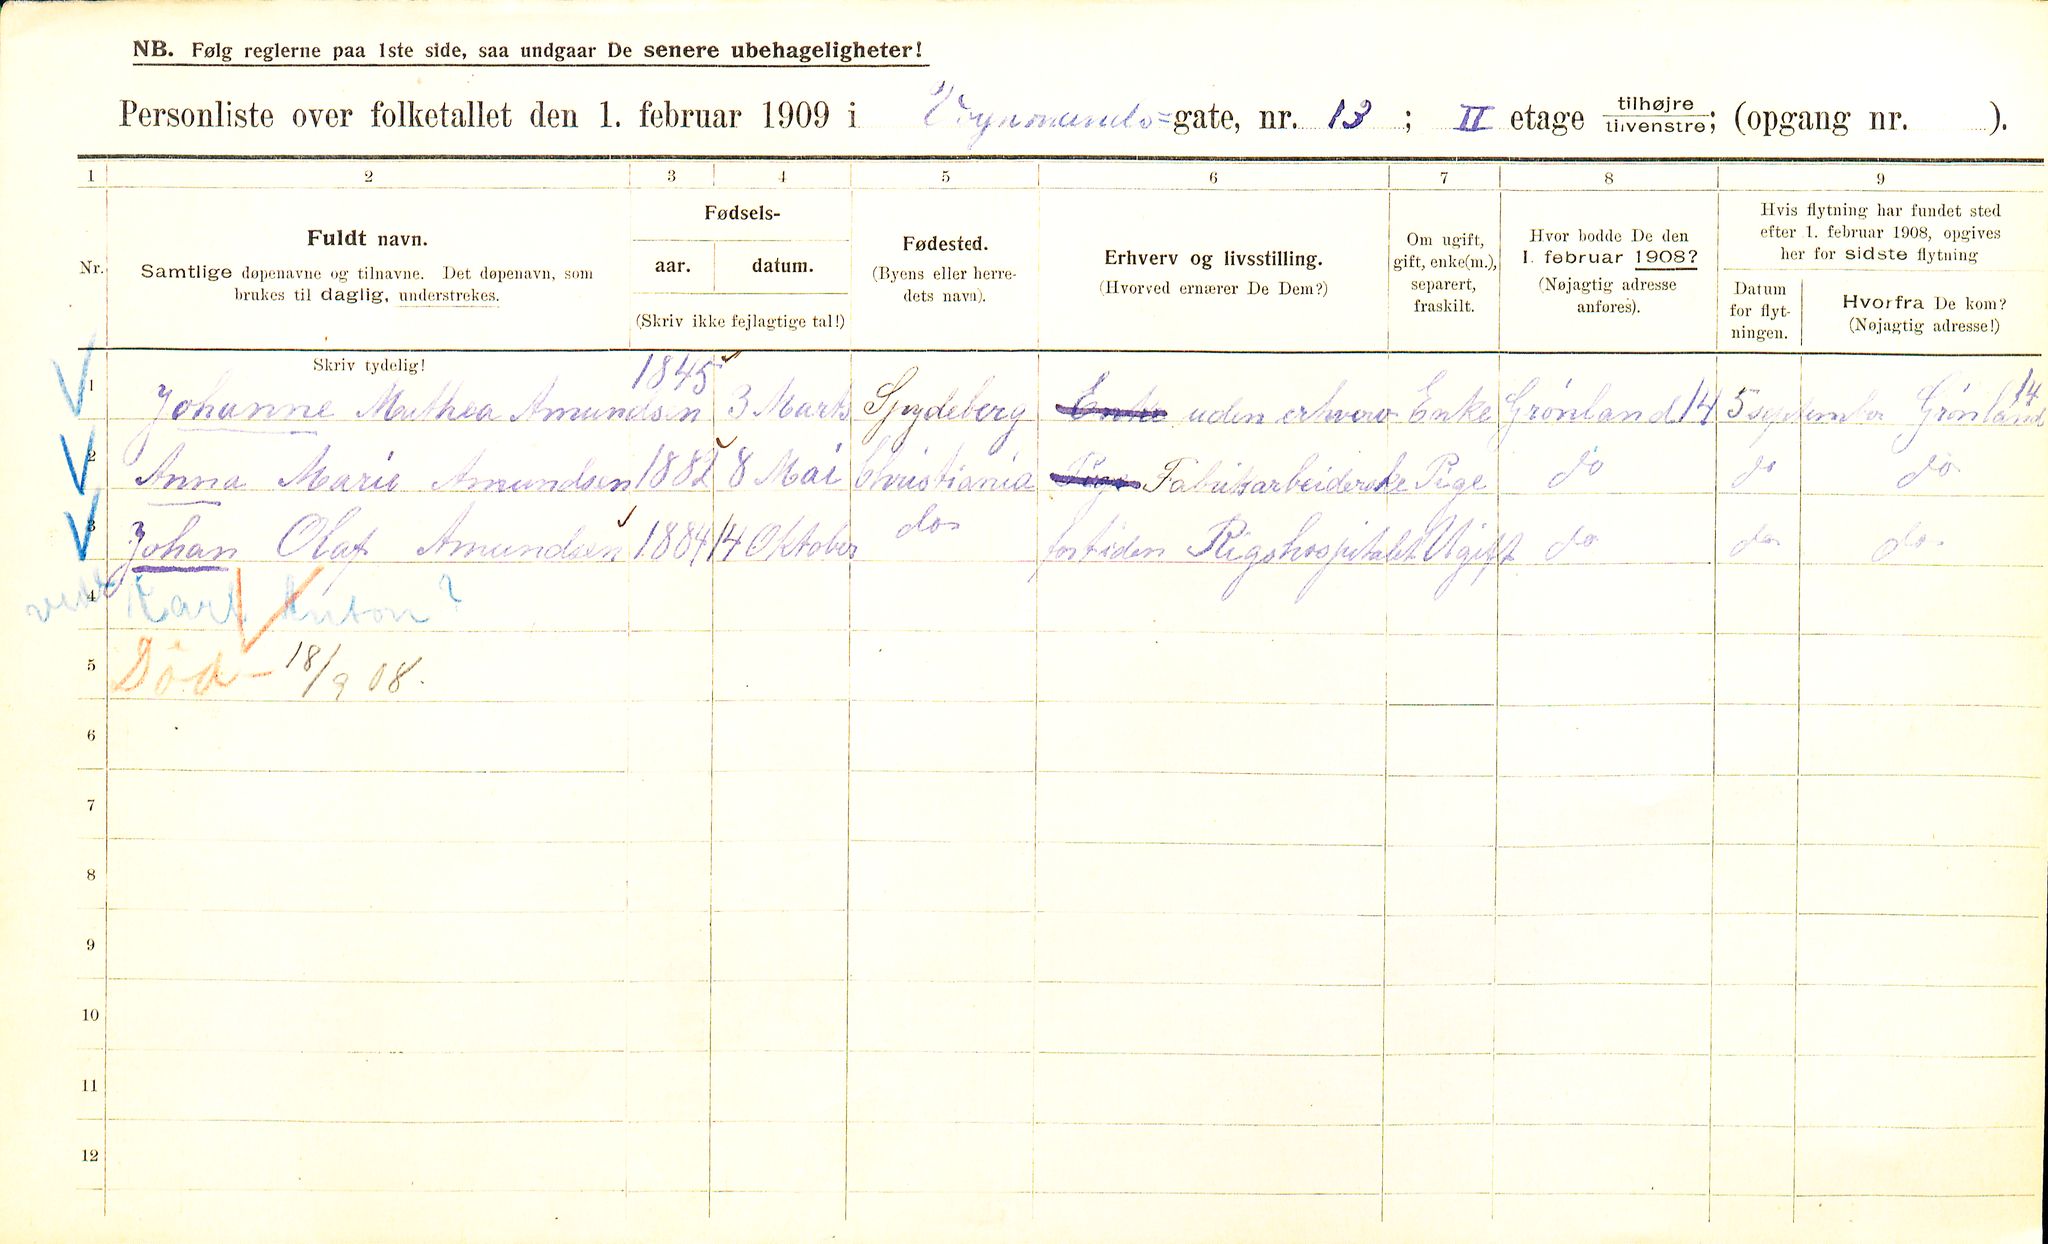 NB. Følg reglerne paa 1ste side, saa undgaar De senere ubehageligheter!
Personliste over folketallet den 1. februar 1909 i Vognmands=gate, nr. 13; II etage tilhøjre/tilvenstre; (opgang nr. ).
1 2 3 4 5 6 7 8 9
Nr.
Fuldt navn.
Samtlige døpenavne og tilnavne. Det døpenavn, som
brukes til daglig, understrekes.
Fødsels-
aar. datum.
(Skriv ikke fejlagtige tal!)
Fødested.
(Byens eller herre-
dets navn).
Erhverv og livsstilling.
(Hvorved ernærer De Dem?)
Om ugift,
gift, enke(m.),
separert,
fraskilt.
Hvor bodde De den
1. februar 1908?
(Nøjagtig adresse
anføres).
Hvis flytning har fundet sted
efter 1. februar 1908, opgives
her for sidste flytning
Datum
for flyt-
ningen.
Hvorfra De kom?
(Nøjagtig adresse!)
Skriv tydelig!
1 Johanne Mathea Amundsen 1845 3 Marts Spydeberg Enke uden erhverv Enke Grønland 14 5 september Grønland 14
2 Anna Marie Amundsen 1882 8 Mai Christiania Pige Fabriksarbeiderske Pige do do do
3 Johan Olaf Amundsen 1884 14 Oktober do fortiden Rigshospitalet Ugift do do do
4 Karl Anton?
5 Død - 18/9 08.
6
7
8
9
10
11
12